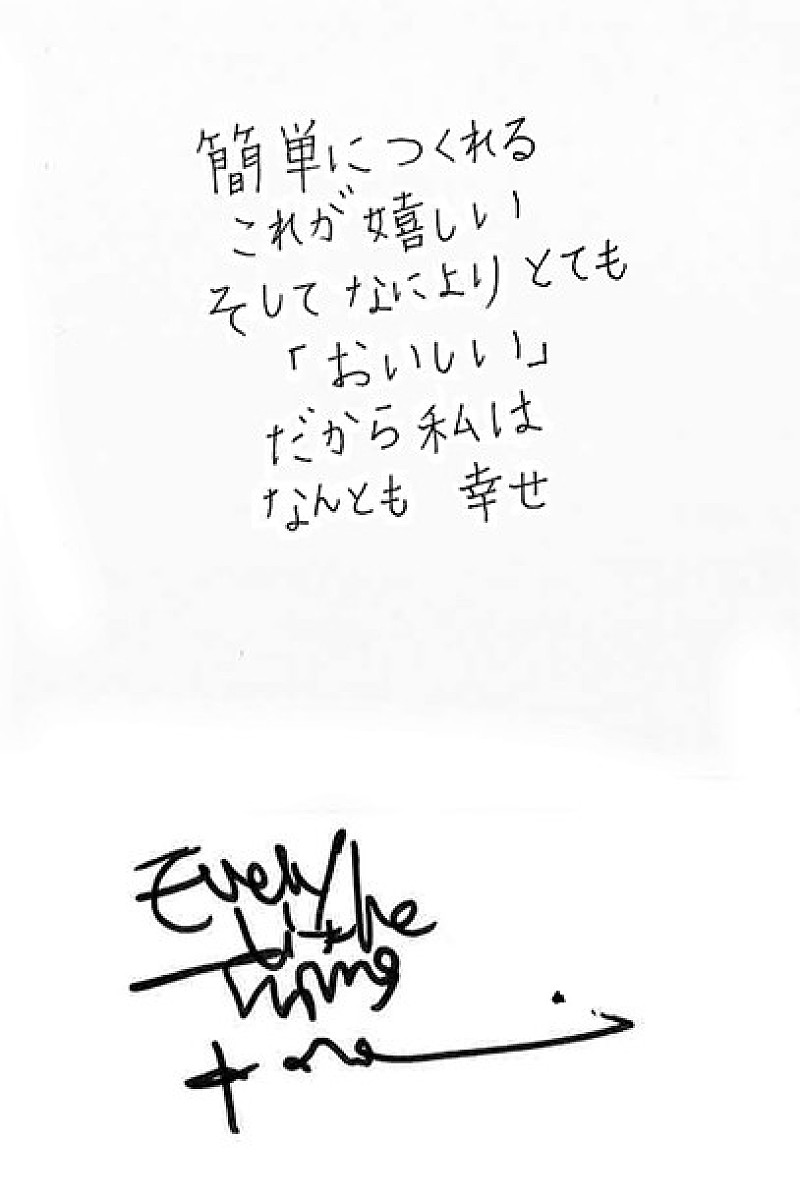 簡単につくれる
これが嬉しい
そしてなによりとても
「おいしい」
だから私は
なんとも 幸せ
Every